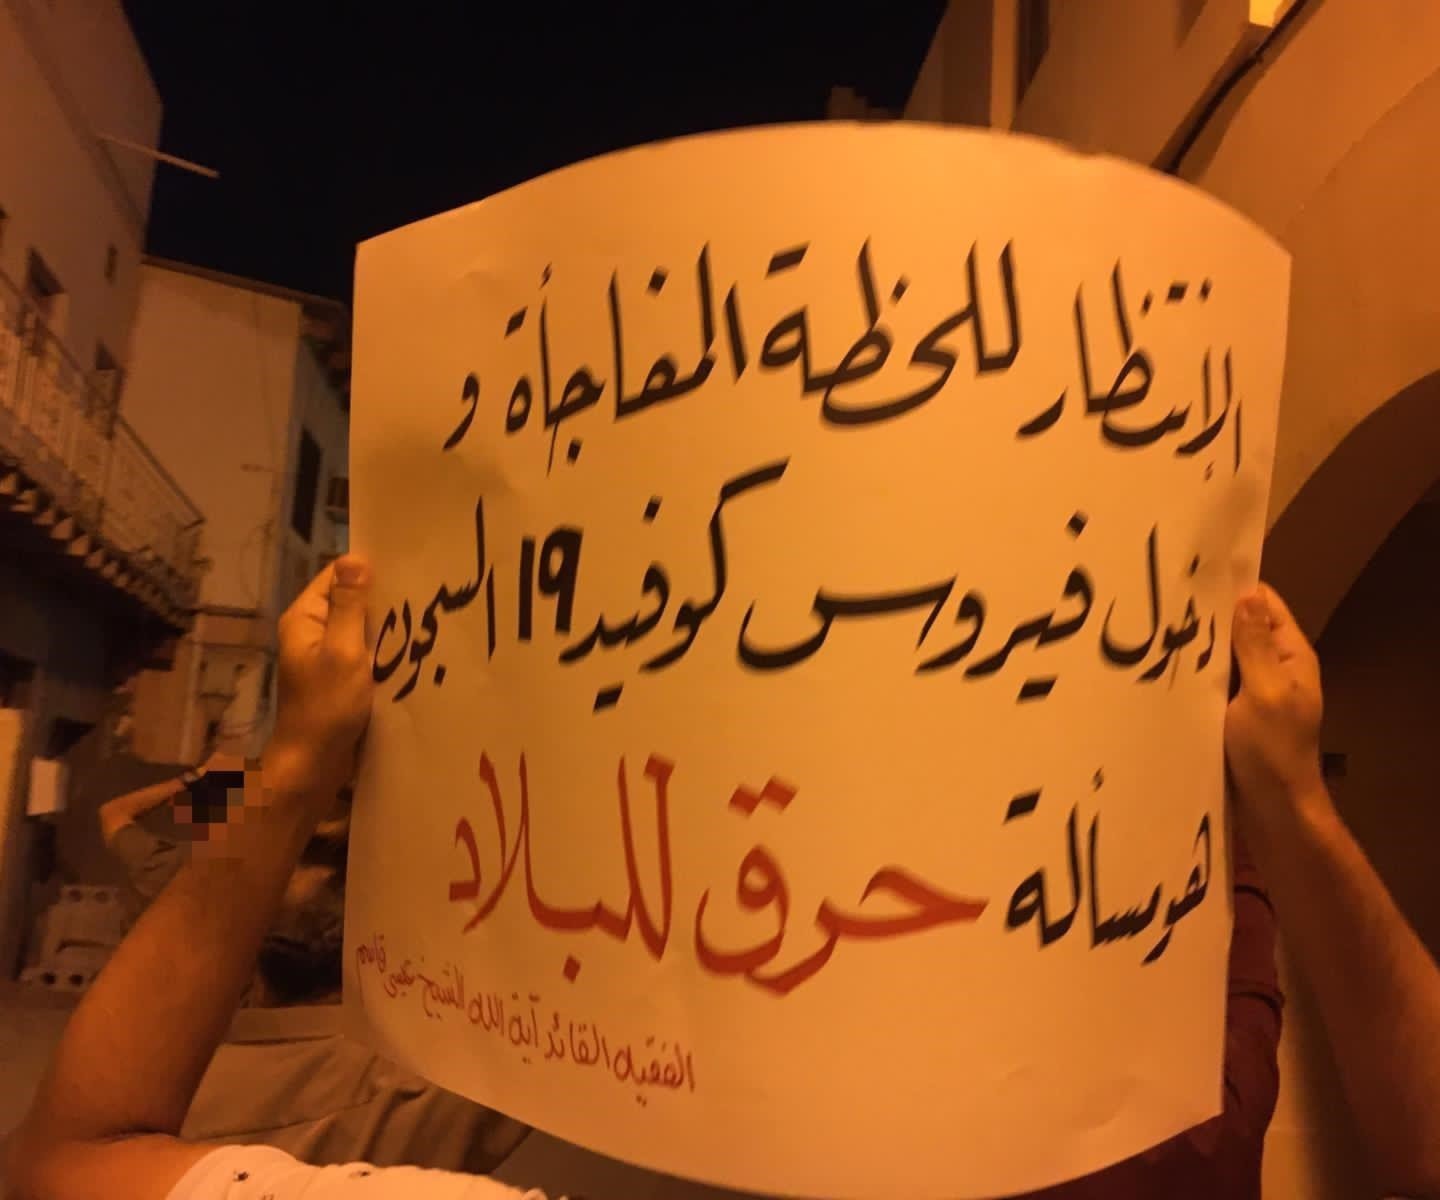 الإنتظار للحظة المفاجأة و
دخول فيروس كوفيد 19 السجون
هو مسألة حرق للبلاد
الفقيه القائد آية الله الشيخ عيسى قاسم